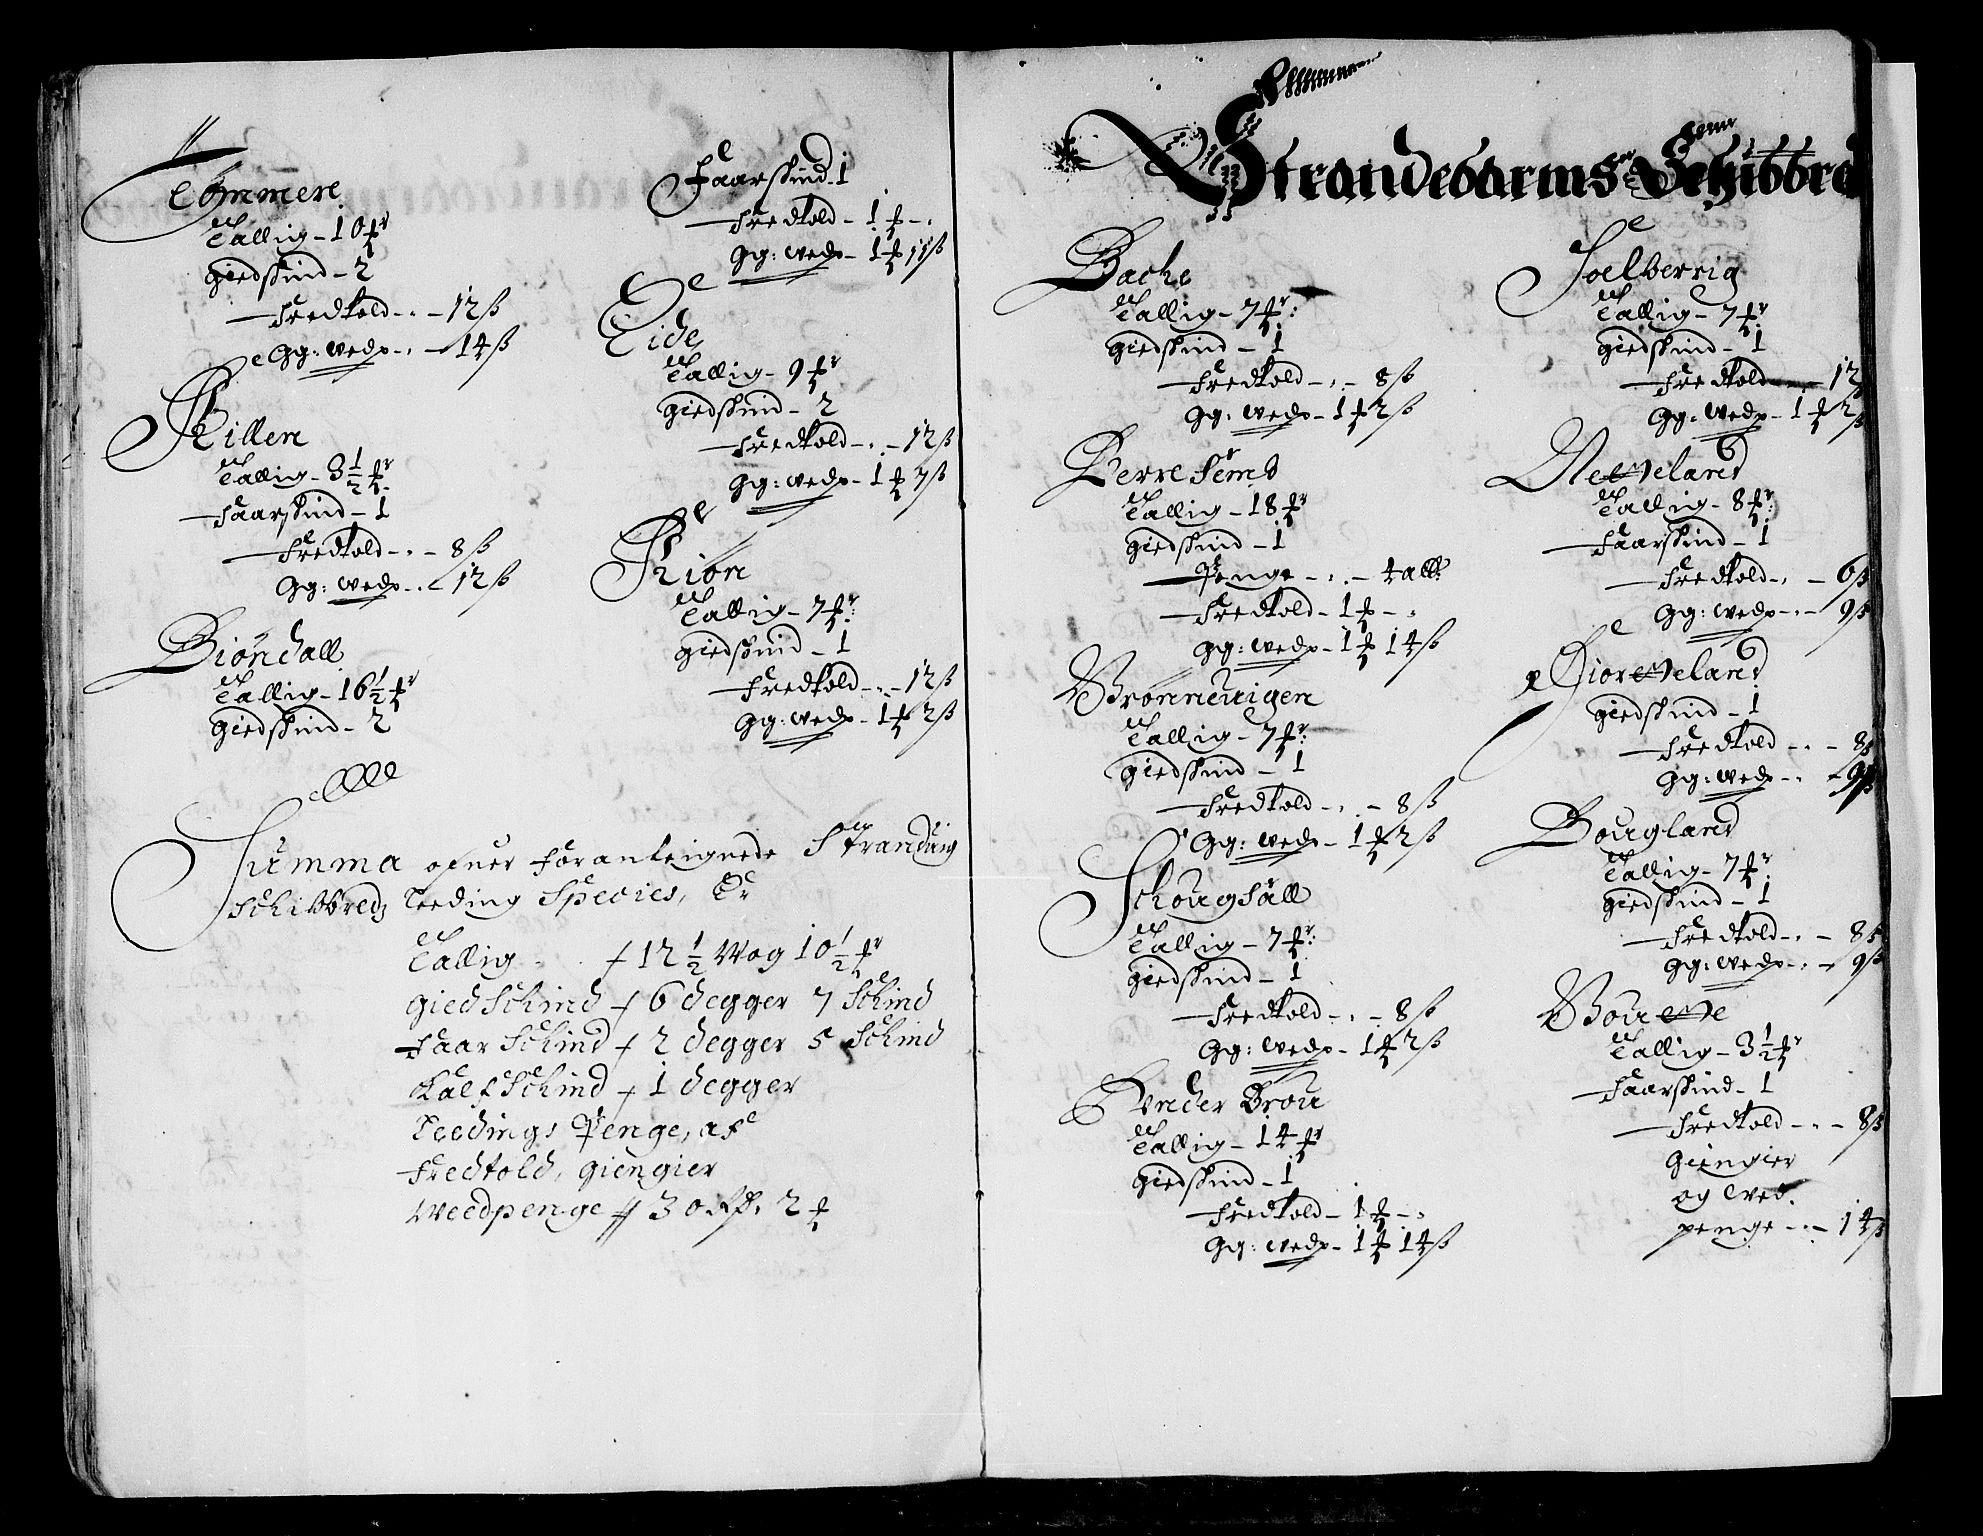 Commere
Tallig - 10 ℔r
giedskind - 2
Fredtold - . - 12 ß
Gg: wedp - . - 14 ß
Killen
Tallig - 3 1/2 ℔r
Faarskind - 1
Fredtold - . - 8 ß
Gg: wedp - . - 12 ß
Biöndall
Tallig - 16 1/2 ℔r
giedskind - 2
Faarskind - 1
Fredtold - 1 ℔ - .
Gg: wedp - 1 ℔ 11 ß
Eide
Tallig - 9 ℔r
giedskind - 2
Fredtold - . - 12 ß
Gg: wedp - 1 ℔ 7 ß
Kiön
Tallig - 7 ℔r:
giedskind - 1
Fredtold - . - 12 ß
Gg: wedp - 1 ℔ 2 ß
Summa ofuer foranteignede Stranduig
Schibbred Leeding Species, Er
Tallig - . 12 1/2 Wog 10 1/2 ℔r
giedSchind 6 degger 7 Schind
Faar Schind 2 degger 5 Schind
Kalf Schind 1 degger
Leedings Penge, af
Fredtold, giengier
Weedpenge 30 Rd. 2 ℔
Strandebarms Schibbre
Bache
Tallig - 7 ℔r:
giedskind - 1
Fredtold - . - 8 ß
Gg: wedp - 1 ℔ 2 ß
Berre Sem
Tallig - 18 ℔r
giedskind - 1
Penge - . -
Fredtold - 1 ℔ - .
Gg: wedp - 1 ℔ 14 ß
Brönneuigen
Tallig - 7 ℔r:
giedskind - 1
Fredtold - . - 8 ß
Gg: wedp - 1 ℔ 2 ß
Schougsäll
Tallig - 7 ℔r:
giedskind - 1
Fredtold - . - 8 ß
Gg: wedp - 1 ℔ 2 ß
Vnder Brou
Tallig - 14 ℔r
giedskind - 1
Fredtold - 1 ℔ - .
Gg: wedp - 1 ℔ 14 ß
Soelberrig
Tallig - 7 ℔r:
giedskind - 1
Fredtold - . - 12
Gg: wedp - 1 ℔ 2 ß
Neweland
Tallig - 8 ℔r:
Faarskind - 1
Fredtold - . - 6 ß
Gg: wedp - . - 9 ß
Giöreweland
giedskind - 1
Fredtold - . - 8 ß
Gg: wedp - . - 9 ß
Bougland
Tallig - 7 ℔r:
giedskind - 1
Fredtold - . - 8 ß
Gg: wedp - . - 9 ß
Bouewe
Tallig - 3 1/2 ℔r
Faarskind - 1
Fredtold - . - 8 ß
Giengier
og wed.
penge - . - 14 ß